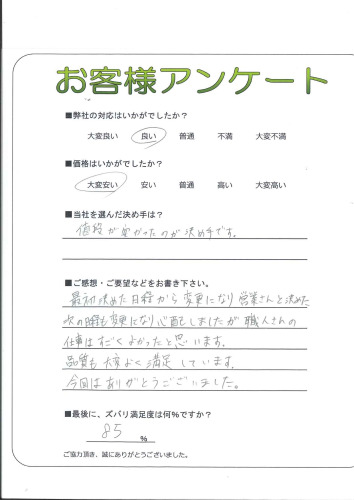 お客様アンケート
■弊社の対応はいかがでしたか？
大変良い 良い 普通 不満 大変不満
■価格はいかがでしたか？
大変安い 安い 普通 高い 大変高い
■当社を選んだ決め手は？
値段が安かったのが決め手です。
■ご感想・ご要望などをお書き下さい。
最初決めた日程から変更になり営業さんと決めた
次の日程も変更になり心配しましたが職人さんの
仕事はすごくよかったと思います。
品質も大変よく満足しています。
今回はありがとうございました。
■最後に、ズバリ満足度は何%ですか？
85 %
ご協力頂き、誠にありがとうございました。